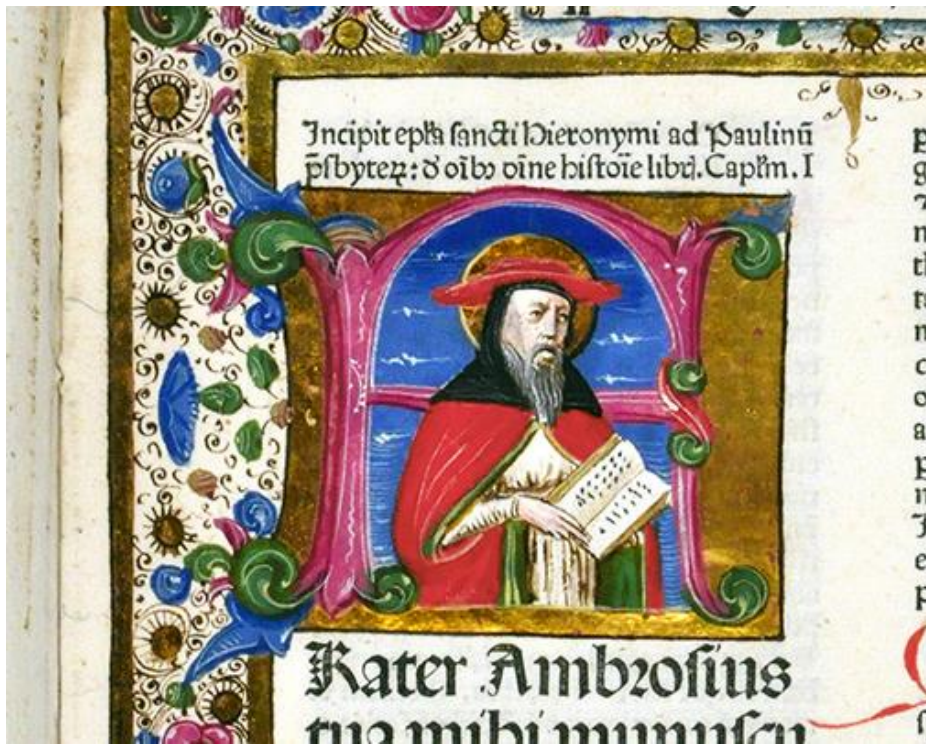 Incipit ep̄la ſancti Hieronymi ad Paulinū
p̄ſbyteꝝ: d̄ oībꝰ diīne hiſtoīe libꝝ. Capl̄m. I
Rater Ambroſius
tua mihi munuſcu